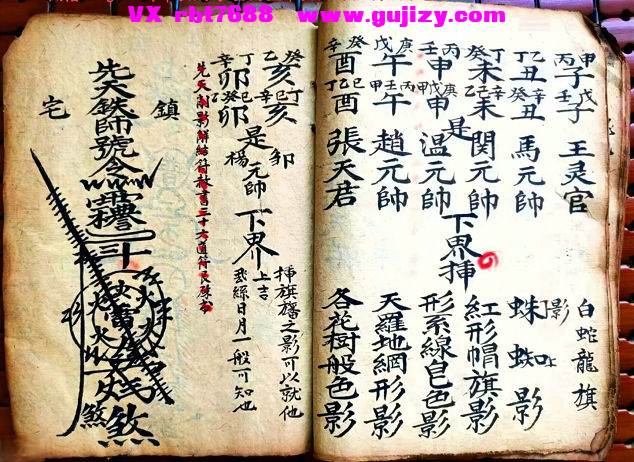 VX rbt7688 www.gujizy.com
甲丙子戊壬子王灵官
乙丁丑辛癸丑馬元帥
丁癸未辛己乙未關元帥
丙壬申庚戊甲申温元帥
庚戊午丙壬甲午趙元帥
癸辛酉己乙丁酉張天君
是
下界挿
白蛇龍旗
影
蛛蜘影
紅形帽旗影
形系線皂色影
天羅地網形影
各花樹般色影
癸乙亥丁己辛亥
丁辛卯己癸卯
是
鄒楊元帥
下界
挿旗旛之影可以就他
上吉
絲日月一般可知也
先天影解結符秘書三十六道符
鎮宅
號令
煞
煞